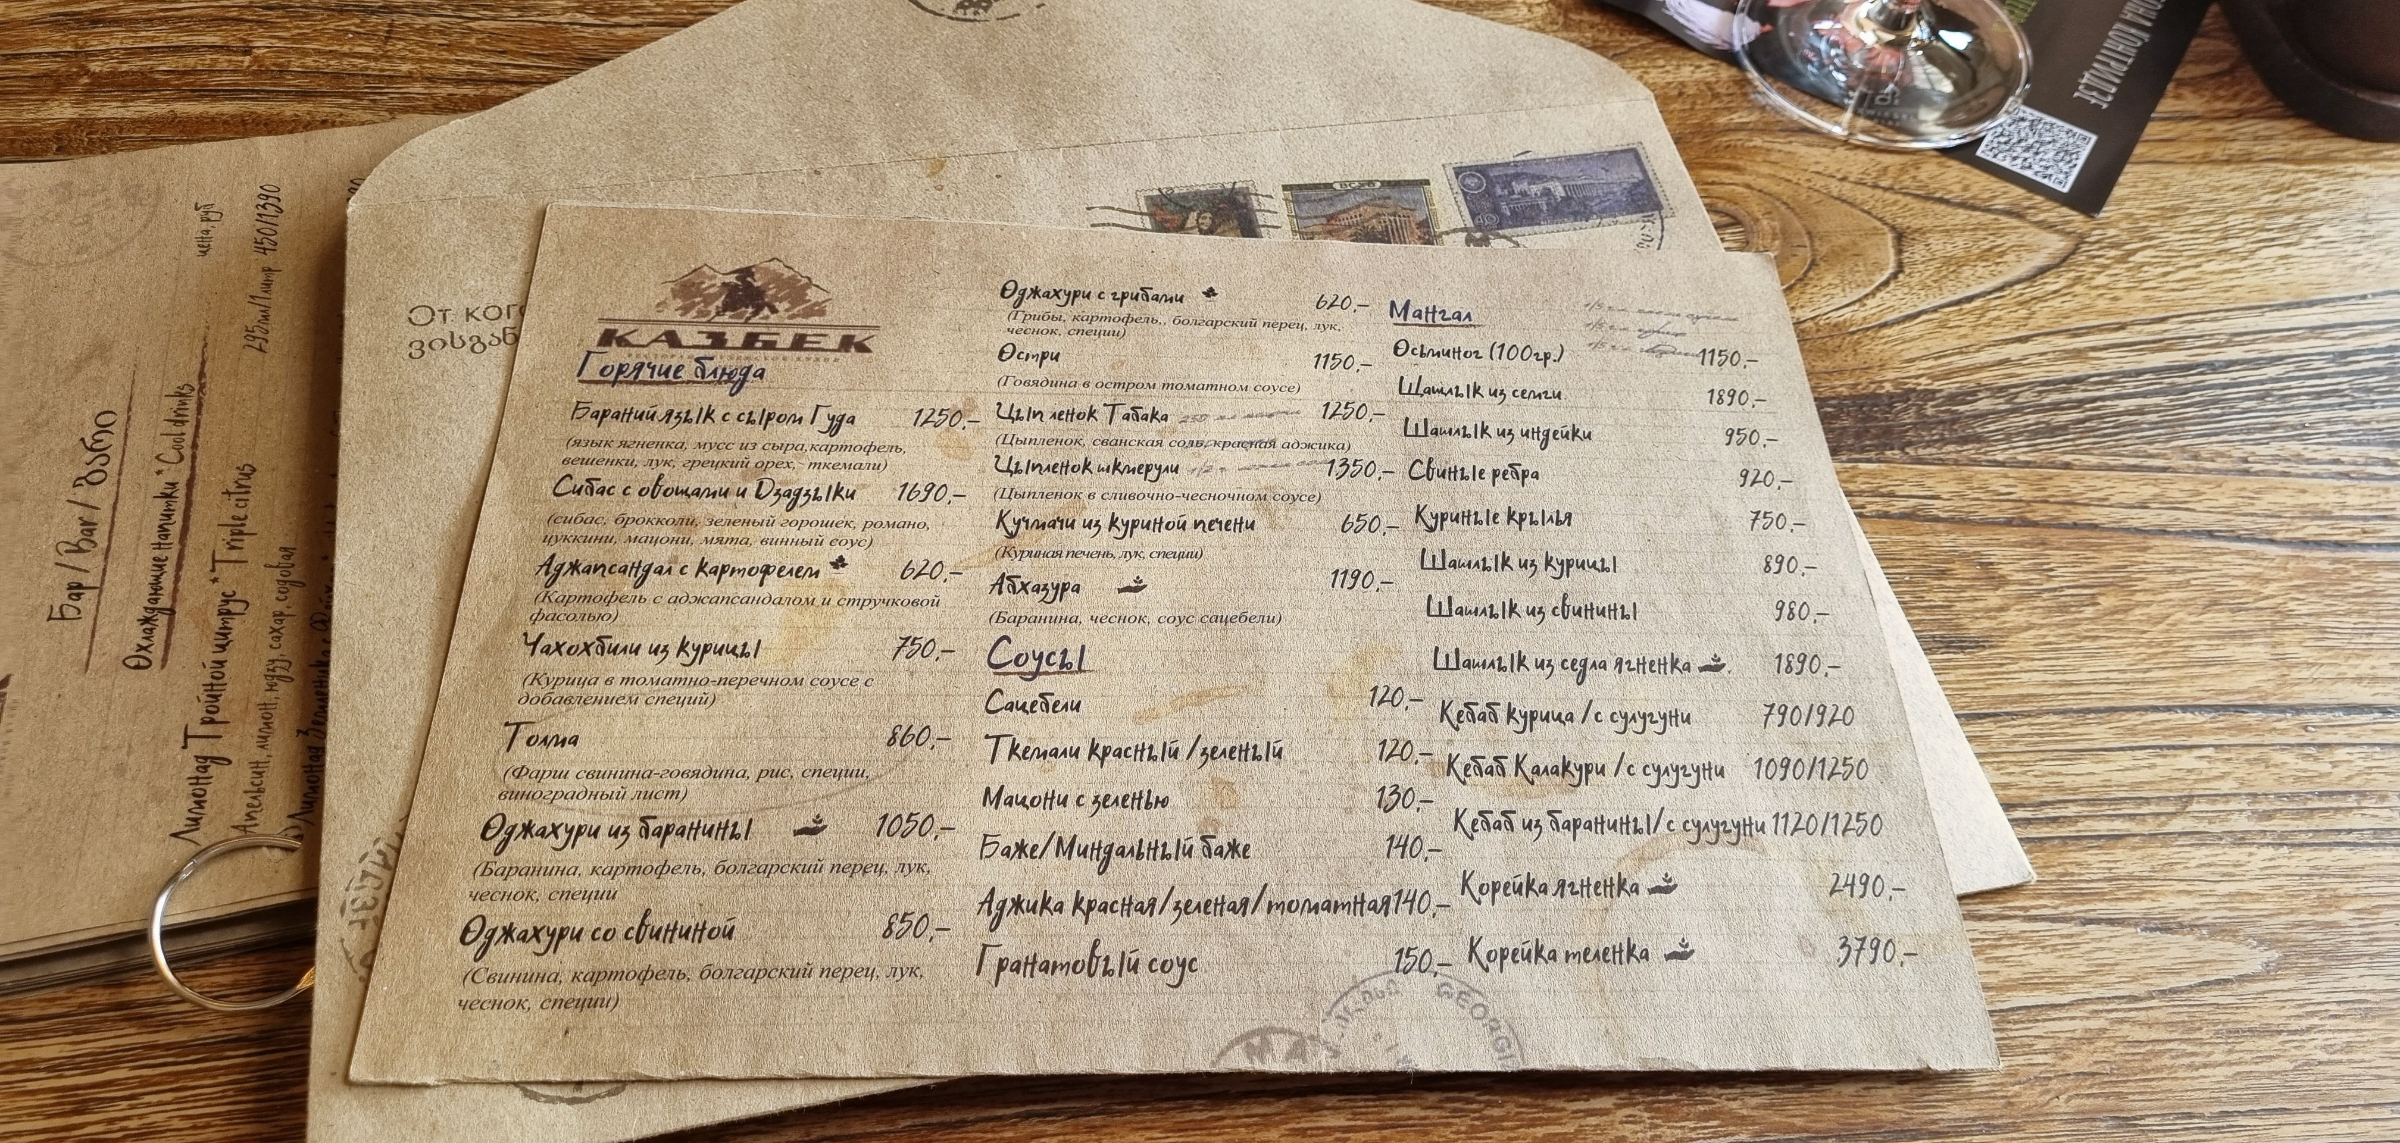 КАЗБЕК
Горячие блюда
Бараний язык с сыром Гуда 1250,-
(язык ягненка, мусс из сыра,картофель,
вешенки, лук, грецкий орех, ткемали)
Сибас с овощами и Дзадзыки 1690,-
(сибас, брокколи, зеленый горошек, романо,
цуккини, мацони, мята, винный соус)
Аджапсандал с картофелем 620,-
(Картофель с аджапсандалом и стручковой
фасолью)
Чахохбили из курицы 750,-
(Курица в томатно-перечном соусе с
добавлением специй)
Толма 860,-
(Фарш свинина-говядина, рис, специи,
виноградный лист)
Оджахури из баранины 1050,-
(Баранина, картофель, болгарский перец, лук,
чеснок, специи
Оджахури со свининой 850,-
(Свинина, картофель, болгарский перец, лук,
чеснок, специи)
Оджахури с грибами 620,-
(Грибы, картофель,. болгарский перец, лук,
чеснок, специи)
Остри 1150,-
(Говядина в остром томатном соусе)
Цыпленок Табака 1250,-
(Цыпленок, сванская соль, красная аджика)
Цыпленок шкмерули 1350,-
(Цыпленок в сливочно-чесночном соусе)
Кучмачи из куриной печени 650,-
(Куриная печень, лук, специи)
Абхазура 1190,-
(Баранина, чеснок, соус сацебели)
Соусы
Сацебели 120,-
Ткемали красный /зеленый 120,-
Мацони с зеленью 130,-
Баже/Миндальный баже 140,-
Аджика красная/зеленая/томатная 140,-
Гранатовый соус 150,-
Мангал
Осьминог (100гр.) 1150,-
Шашлык из семги 1890,-
Шашлык из индейки 950,-
Свиные ребра 920,-
Куриные крылья 750,-
Шашлык из курицы 890,-
Шашлык из свинины 980,-
Шашлык из седла ягненка 1890,-
Кебаб курица /с сулугуни 790/920
Кебаб Калакури /с сулугуни 1090/1250
Кебаб из баранины/с сулугуни 1120/1250
Корейка ягненка 2490,-
Корейка теленка 3790,-
GEORGI
От кого
ვისგან
Бар / Bar / ბარი
Охлаждающие напитки * Cool drinks
цена, руб
Лимонад Тройной цитрус * Triple citrus 295мл/1литр 450/1390
Апельсин, лимон, юдзу, сахар, содовая
Лимонад